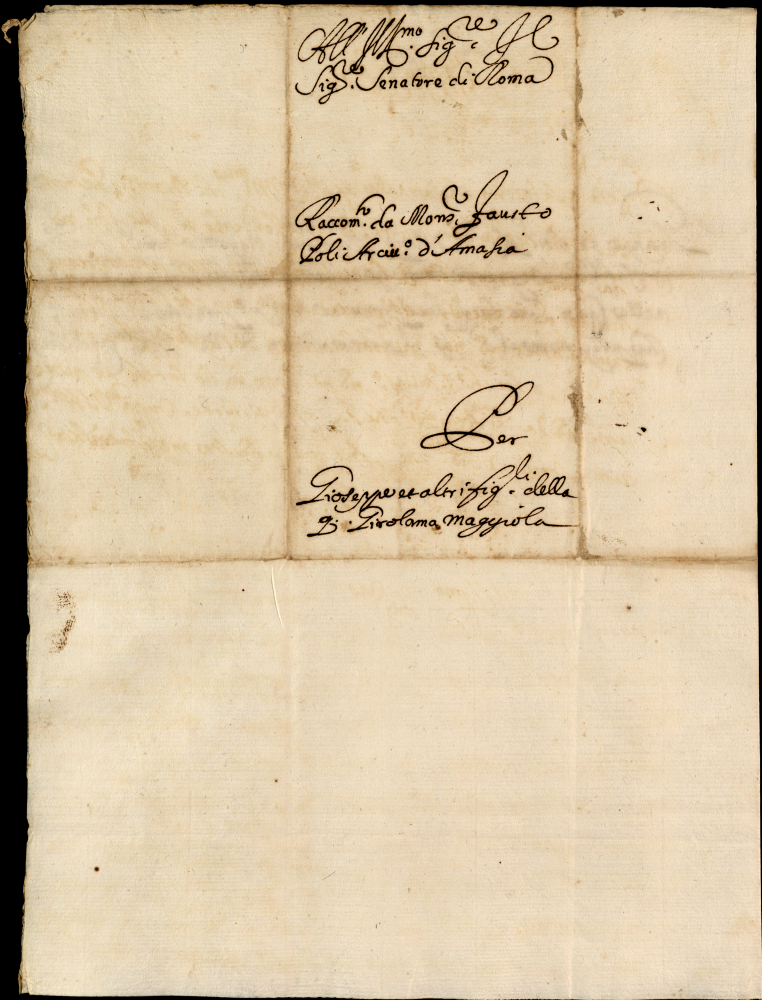 All' Ill.mo Sig.re Il
Sig.re Senatore di Roma
Raccom.to da Mons.r Fausto
Poli Arciu.o d'Amasia
Per
Gioseppe et altri fig.li della
q: Girolama Maggiola